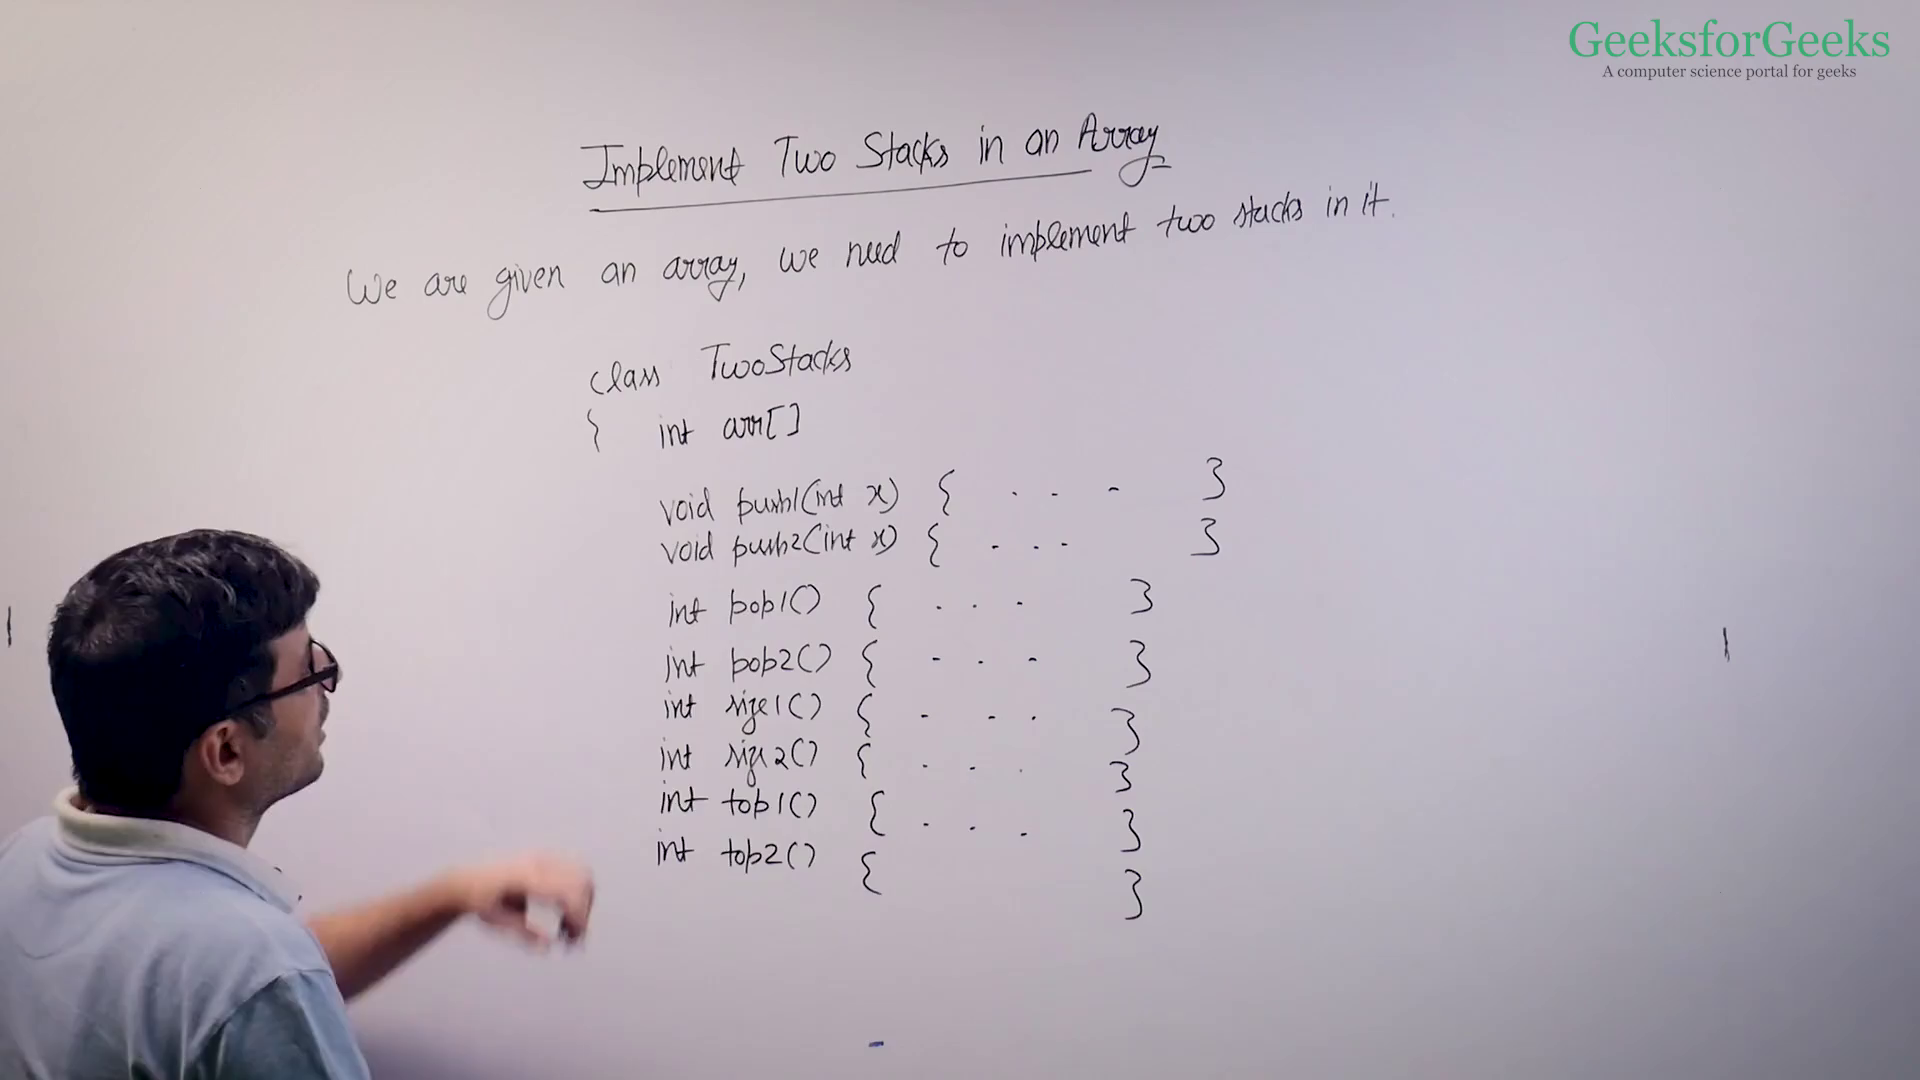 GeeksforGeeks
A computer science portal for geeks
Implement Two Stacks in an Array
We are given an array, we need to implement two stacks in it.
class TwoStacks
{ int arr[]
void push1(int x) { . . - }
void push2(int x) { . . . }
int pop1() { . . . }
int pop2() { - . - }
int size1() { . . . }
int size2() { . . . }
int top1() { . . . }
int top2() { }